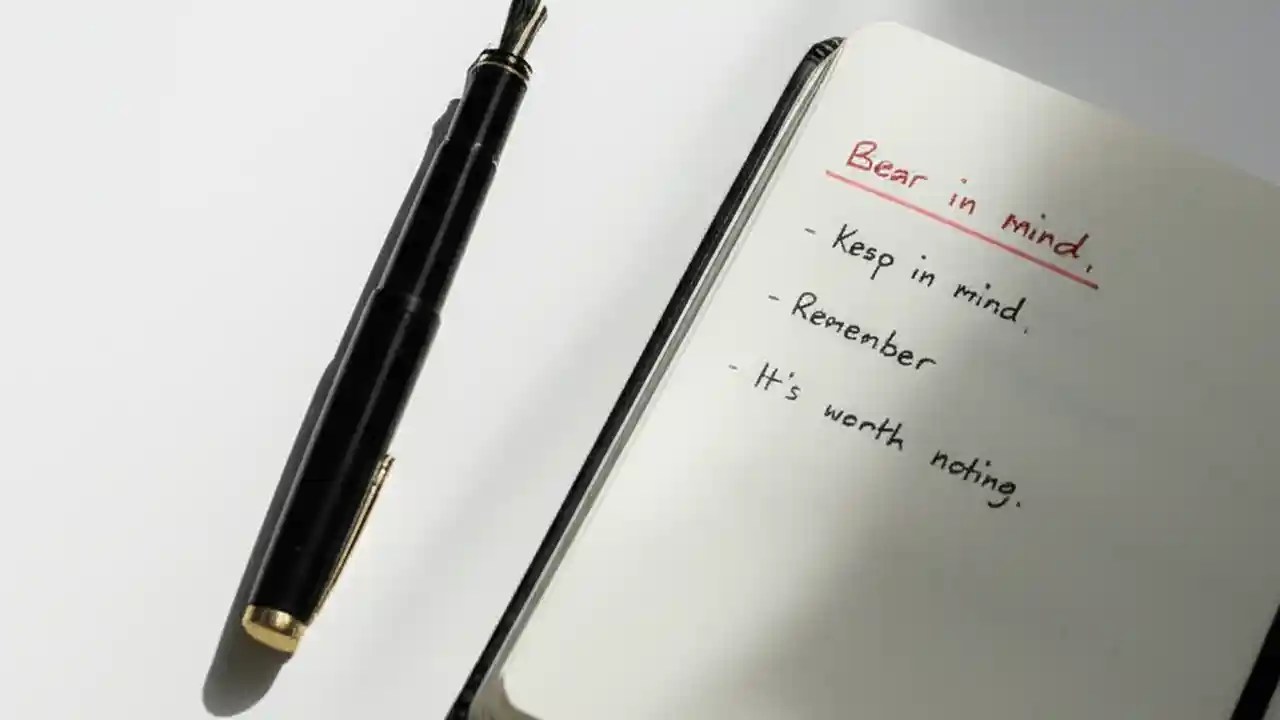 Bear in mind.
- Kesp in mind.
- Remember
- It's worth noting.